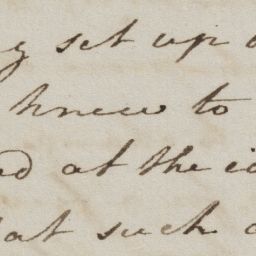 set up
knew to
at the
such